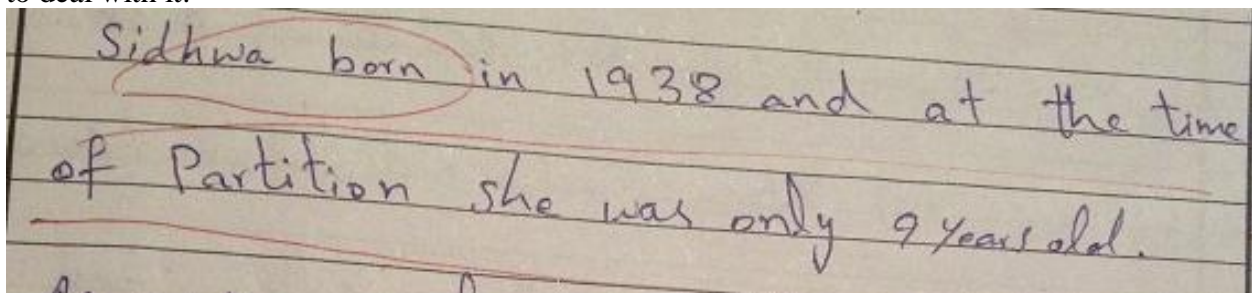 to deal with it.
Sidhwa born in 1938 and at the time
of Partition she was only 9 years old.